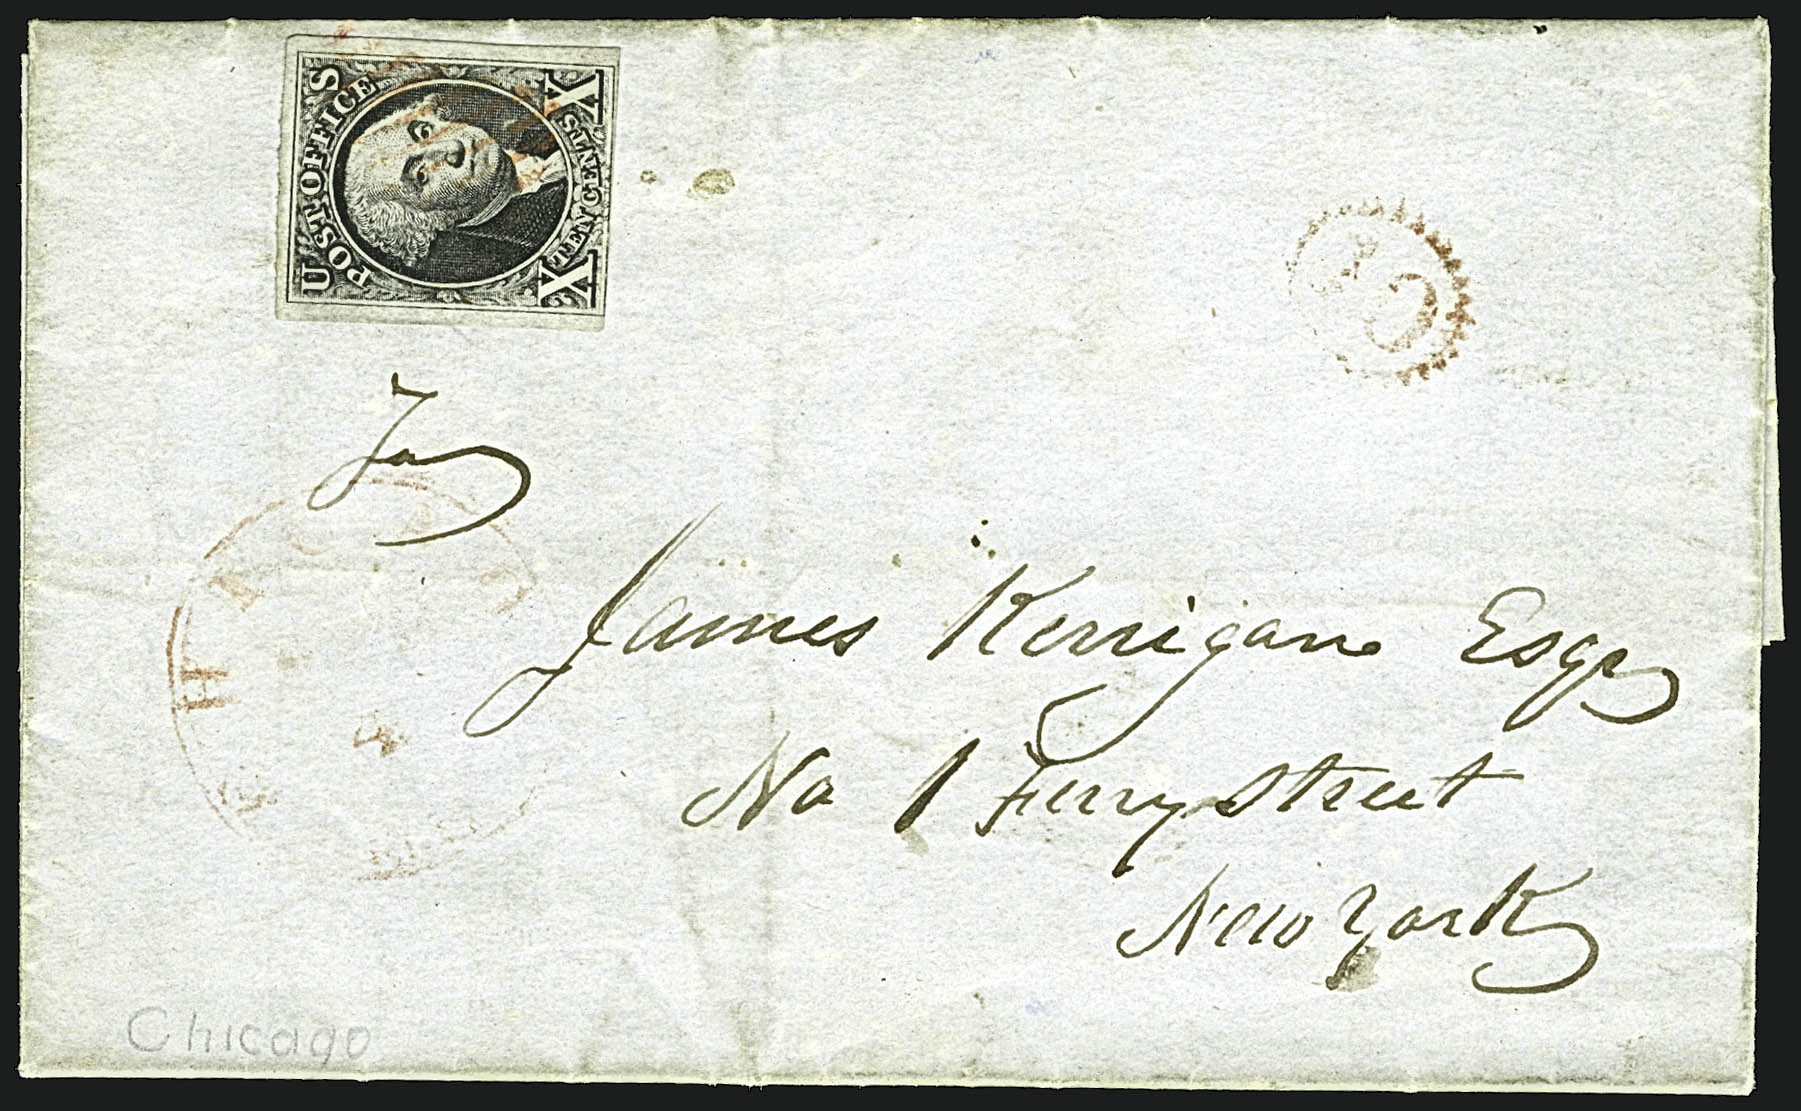 U S
POST OFFICE
X TEN CENTS X
10
To
CHI
4
James Kerrigan Esqr
No 1 Ferry Street
New York
Chicago